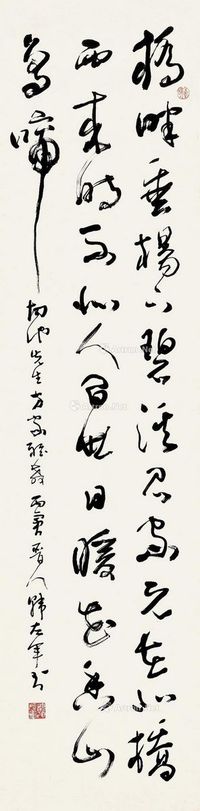 橋畔垂楊下碧溪君家元在北橋
西來時不似人間世日暖花香山
鳥啼
先生方家雅教 丙寅 晉人韓左軍書